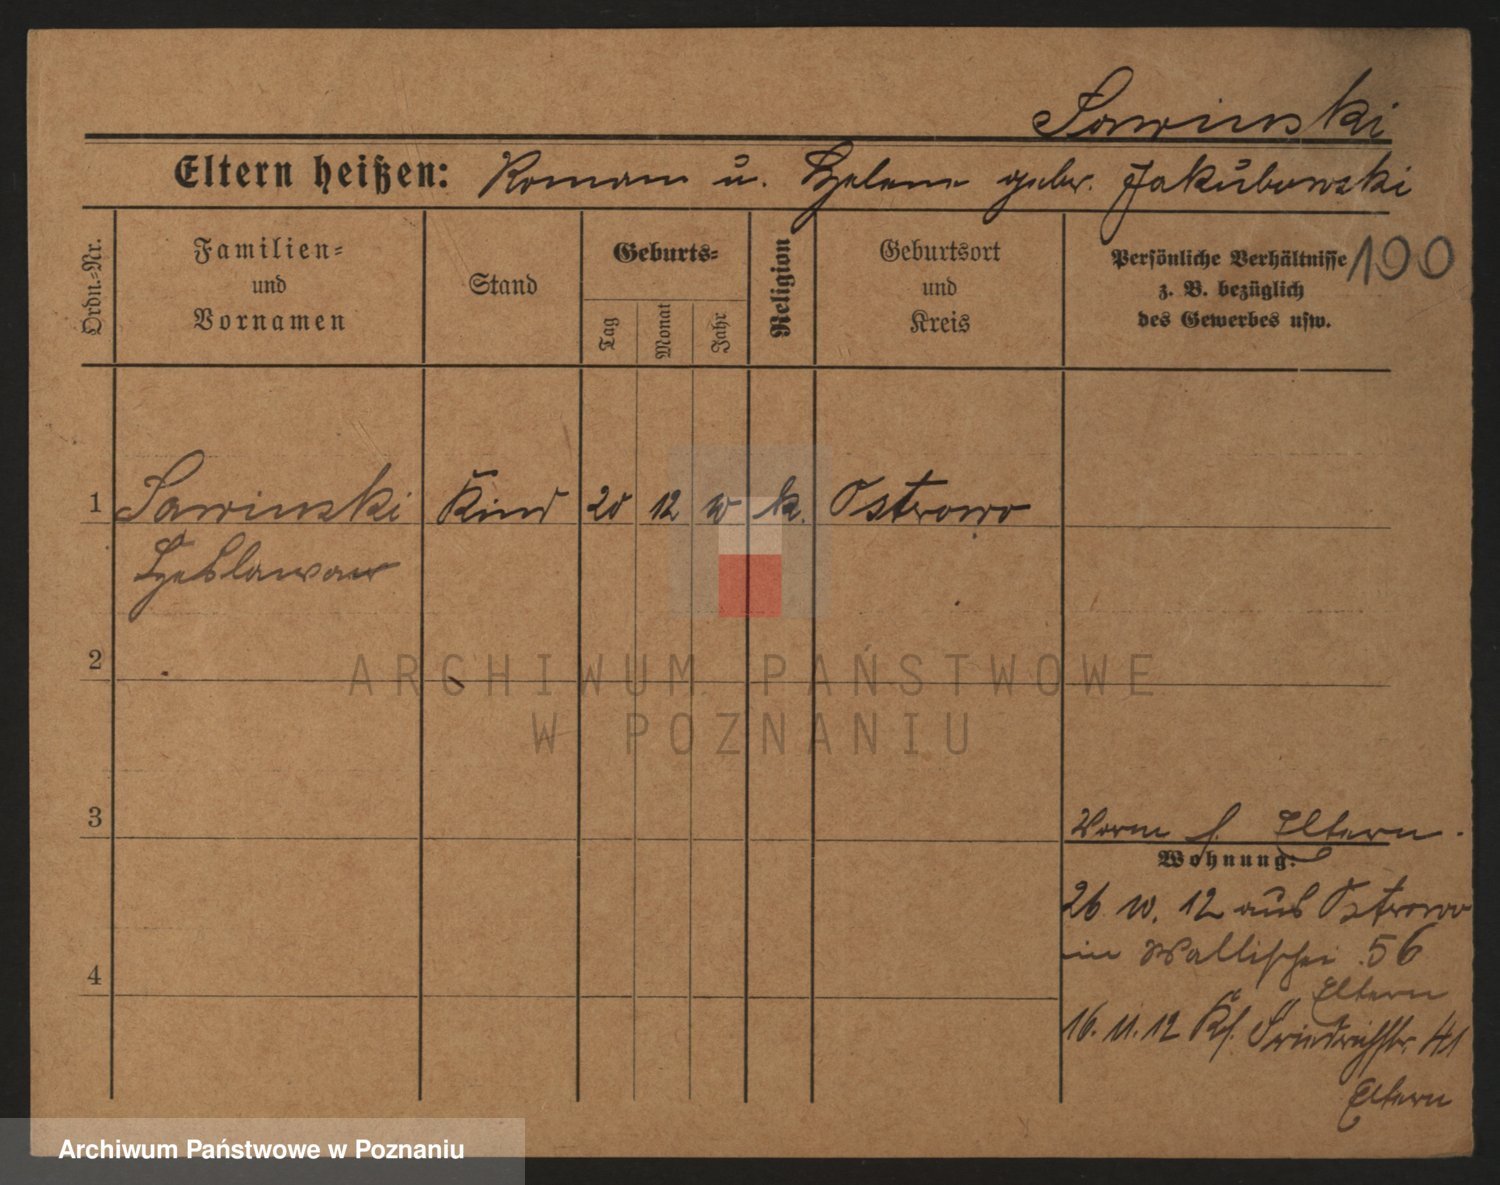 Sawinski
Eltern heißen: Roman u. Helene gebr. Jakubowski
190
Ordn.-Nr.
Familien-
und
Vornamen
Stand
Geburts-
Tag
Monat
Jahr
Religion
Geburtsort
und
Kreis
Persönliche Verhältnisse
z. B. bezüglich
des Gewerbes usw.
1 Sawinski Kind 20 12 10 k. Ostrowo
2
3
4
Eltern.
Wohnung:
26 10. 12 aus Ostrowo
in Wallischei 56
Eltern
16. 11. 12 Kf. Friedrichstr. 41
Eltern
ARCHIWUM PAŃSTWOWE
W POZNANIU
Archiwum Państwowe w Poznaniu